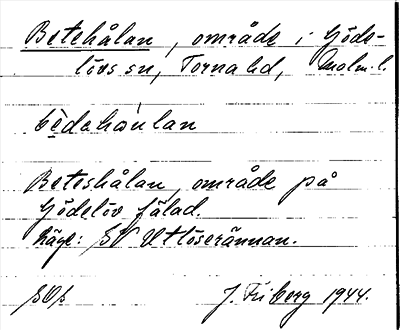 Betehålan, område i Göds-
lövs sn, Torna hd, Malm. l.
bèdahàulan
Beteshålan, område på
Gödelöv fälad.
Läge: SV Utlöserännan.
J. Friberg 1944.